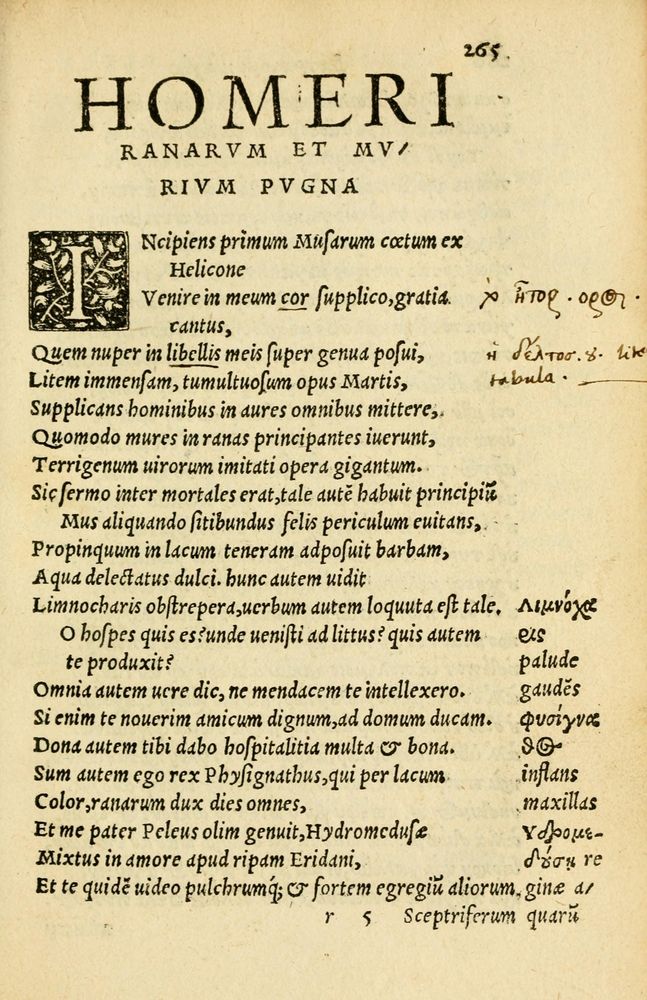 265.
HOMERI
RANARVM ET MV/
RIVM PVGNA
INcipiens primum Musarum cœtum ex
Helicone
Venire in meum cor supplico, gratia
cantus,
Quem nuper in libellis meis super genua posui,
ἡ δέλτος
tabula.
Litem immensam, tumultuosum opus Martis,
Supplicans hominibus in aures omnibus mittere,
Quomodo mures in ranas principantes iuerunt,
Terrigenum uirorum imitati opera gigantum.
Sic sermo inter mortales erat, tale autē habuit principiū
Mus aliquando sitibundus felis periculum euitans,
Propinquum in lacum teneram adposuit barbam,
Aqua delectatus dulci. hunc autem uidit
Limnocharis obstrepera, uerbum autem loquuta est tale.
O hospes quis es? unde uenisti ad littus? quis autem
te produxit?
Omnia autem uere dic, ne mendacem te intellexero.
Si enim te nouerim amicum dignum, ad domum ducam.
Dona autem tibi dabo hospitalitia multa & bona.
Sum autem ego rex Physignathus, qui per lacum
Color, ranarum dux dies omnes,
Et me pater Peleus olim genuit, Hydromedusæ
Mixtus in amore apud ripam Eridani,
Et te quidē uideo pulchrumq; & fortem egregiū aliorum,
Λιμνόχα
ρις
palude
gaudēs
φυσίγνα
θος
inflans
maxillas
Υδρομέ-
δουση re
ginæ a/
r 5 Sceptriferum quarū